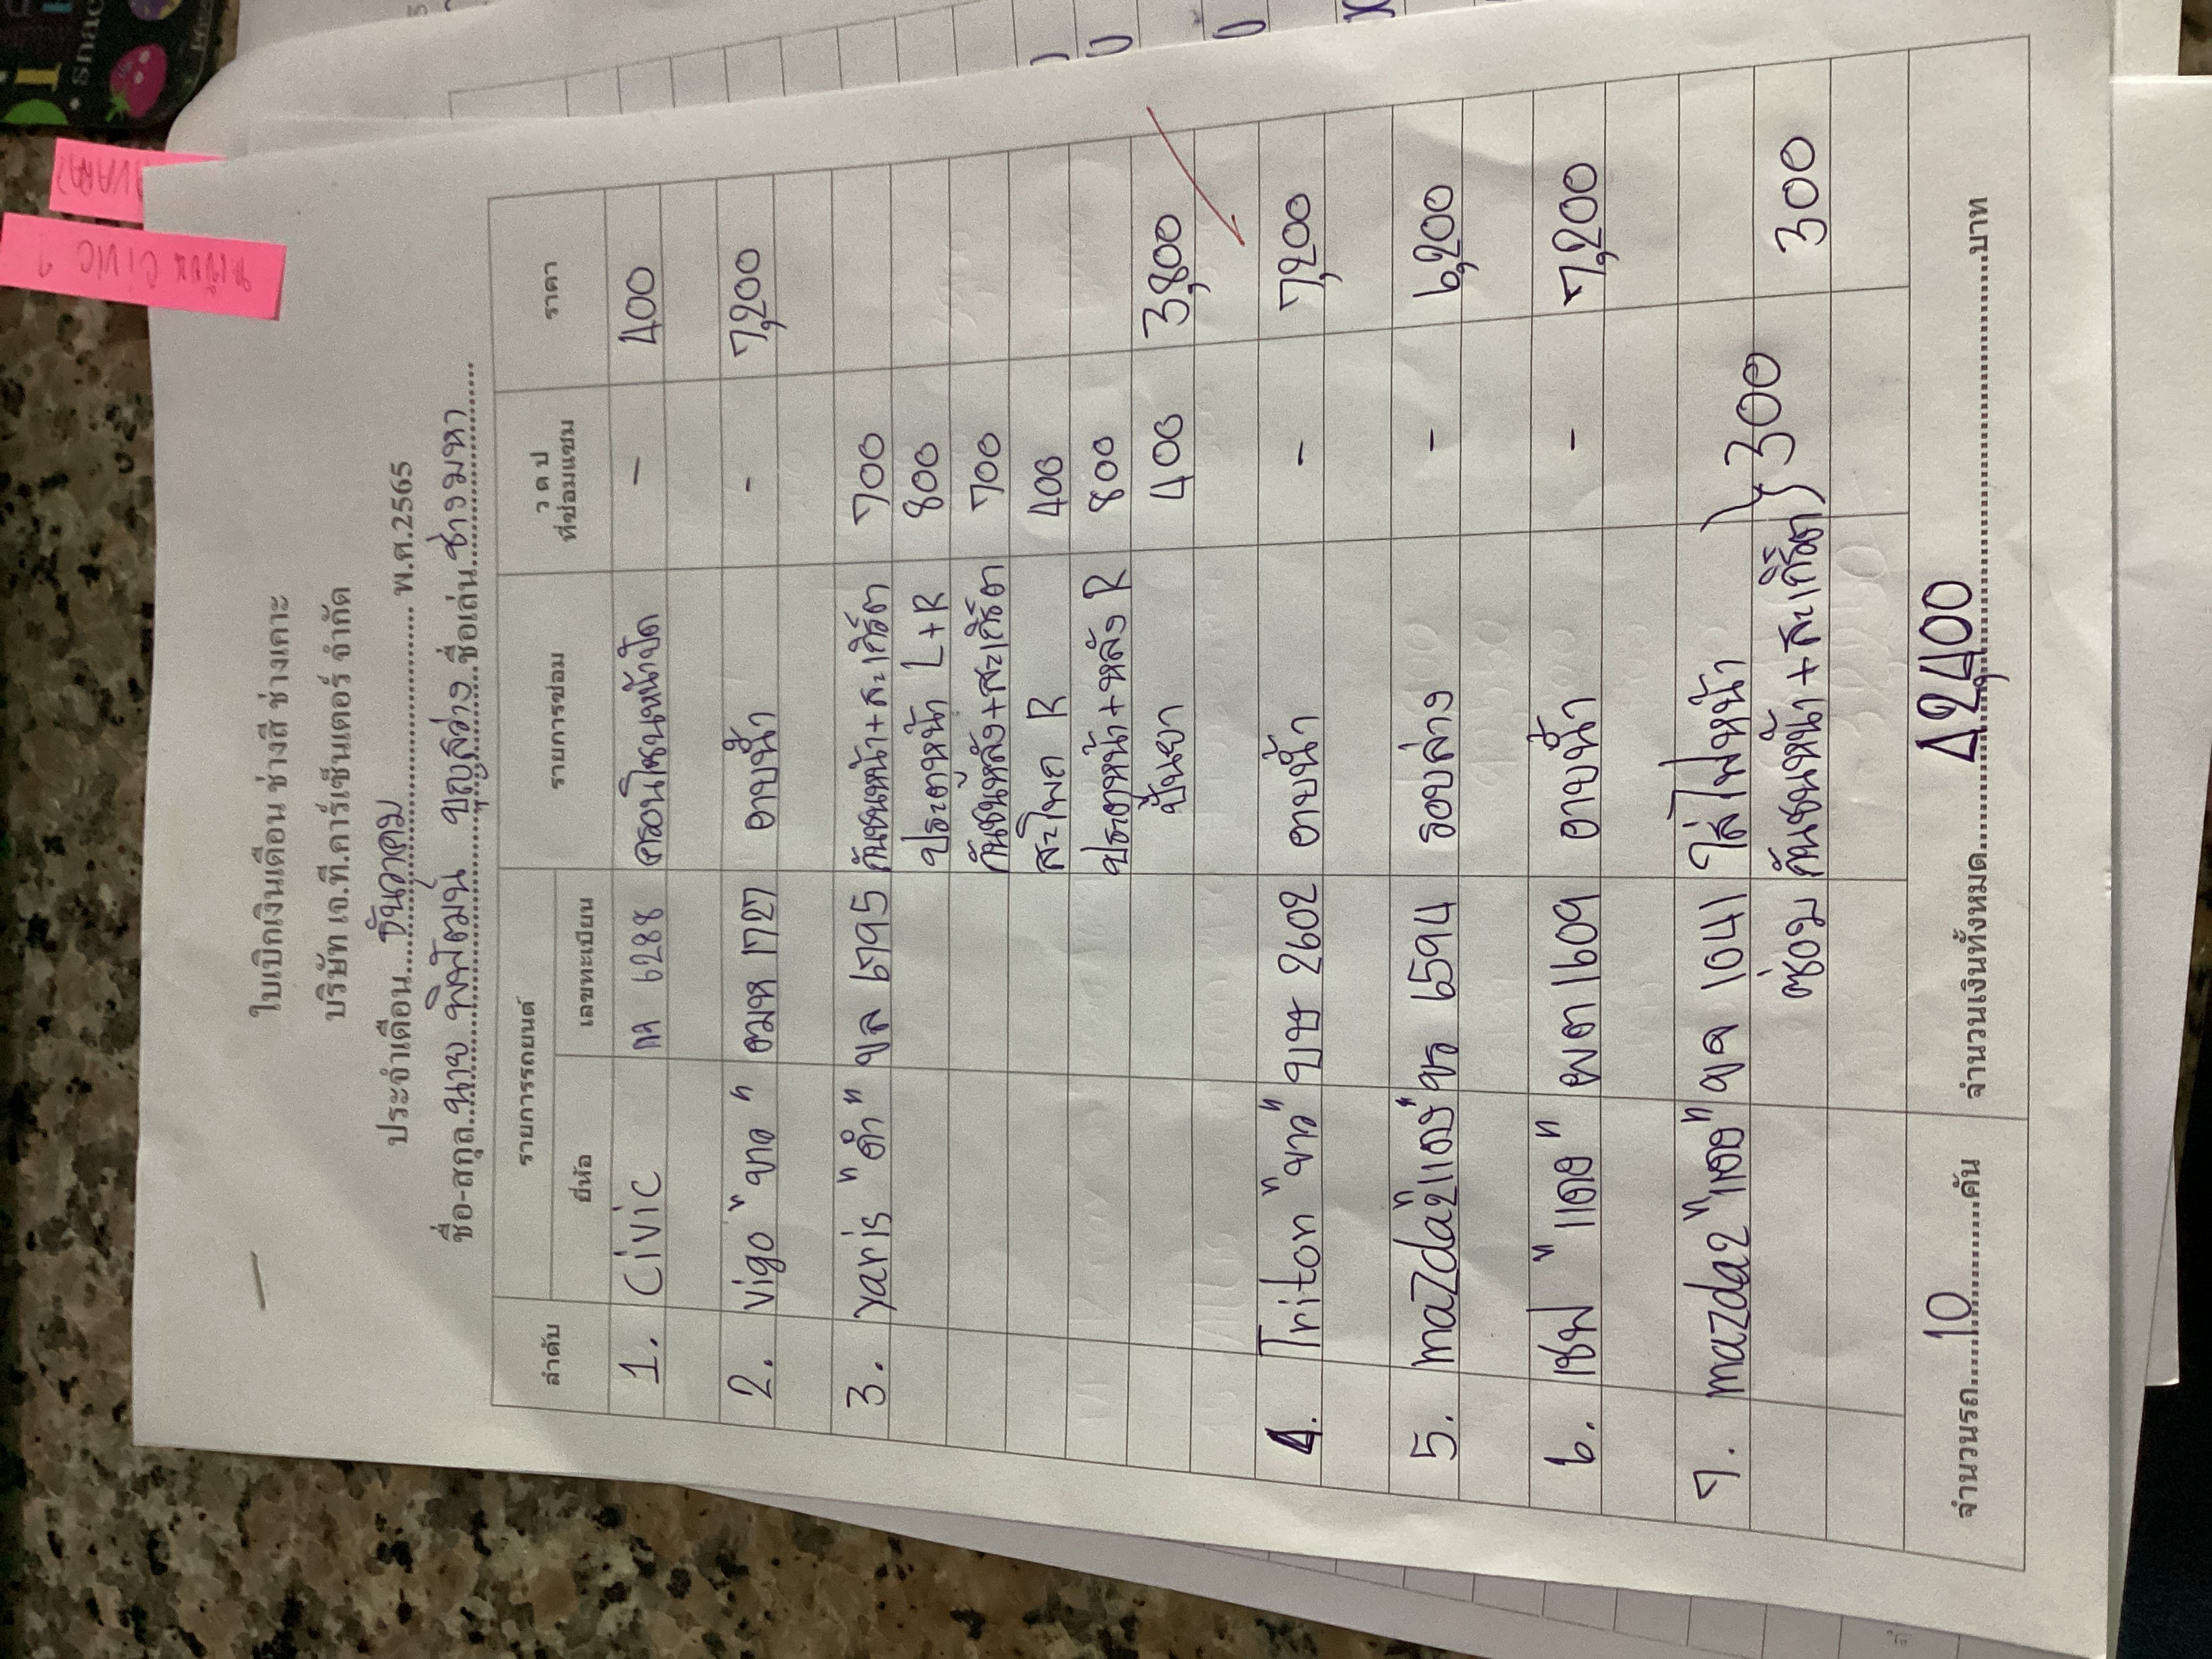 ใบเบิกเงินเดือน ช่างสี ช่างเคาะ
บริษัท เจ.ที.คาร์เซ็นเตอร์ จำกัด
ประจำเดือน...ธันวาคม... พ.ศ.2565
ชื่อ-สกุล..นาย พิพัฒน์ บุญสว่าง..ชื่อเล่น..ช่างมหา
ลำดับ รายการรถยนต์ รายการซ่อม ว ด ป ที่ซ่อมแซม ราคา
ยี่ห้อ เลขทะเบียน
1. Civic กค 6288 คอนโซนหน้าปัด - 400
2. Vigo "ขาว" 1727 อาบน้ำ - 7,200
3. yaris "ดำ" ขล 6795 กันชนหน้า+สะเกิร์ต 700
ประตูหน้า L+R 800
กันชนหลัง+สะเกิร์ต 700
สะโพก R 400
ประตูหน้า+หลัง R 800
ปั้นยา 400 3,800
4. Triton "ขาว" บษ 2602 อาบน้ำ - 7,200
5. mazda2 "แดง" ขร 6594 รอบล่าง - 6,200
6. เชฟ "แดง" ผต 1609 อาบน้ำ - 7,200
7. mazda2 "แดง" ขจ 1041 ใส่ไฟหน้า
ซ่อม กันชนหน้า+สะเกิร์ต } 300 300
จำนวนรถ....10....คัน จำนวนเงินทั้งหมด....42,400....บาท